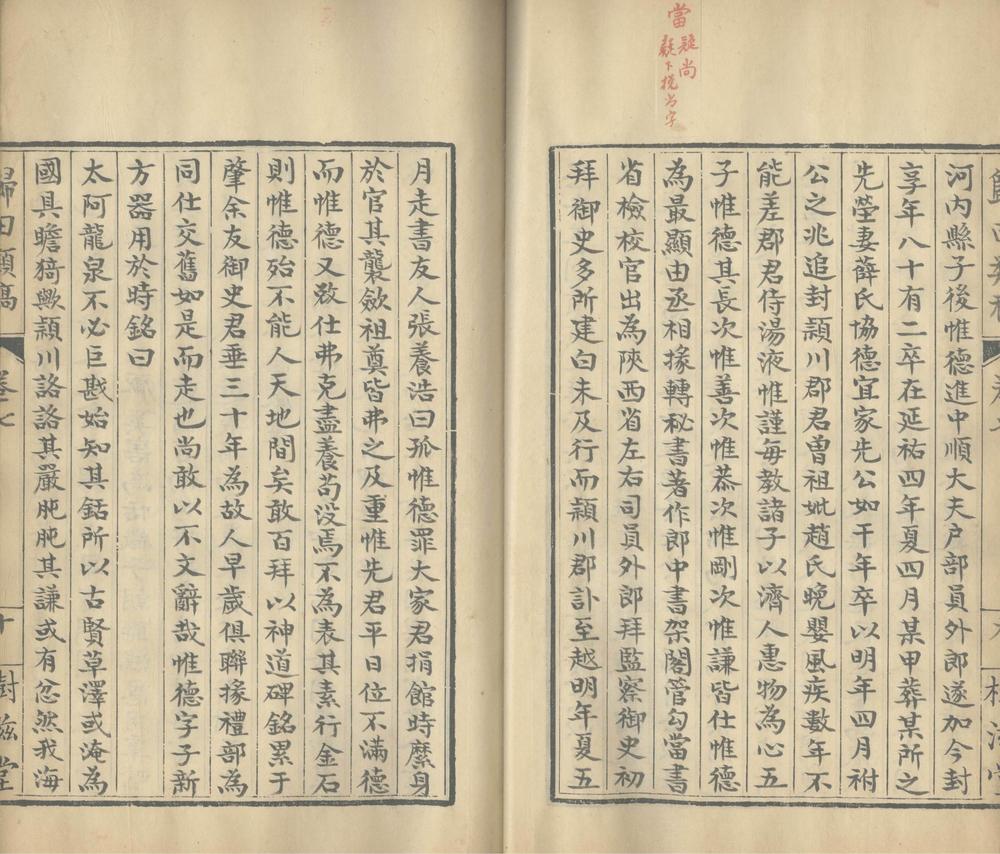 當疑尚
疑下挩当字
河內縣子後惟德進中順大夫户部員外郎遂加今封
享年八十有二卒在延祐四年夏四月某甲葬某所之
先塋妻薛氏協德宜家先公如干年卒以明年四月祔
公之兆追封頴川郡君曾祖妣趙氏晚嬰風疾數年不
能差郡君侍湯液惟謹每教諸子以濟人惠物為心五
子惟德其長次惟善次惟恭次惟剛次惟謙皆仕惟德
為最顯由丞相掾轉秘書著作郎中書架閣管勾當書
省檢校官出為陝西省左右司員外郎拜監察御史初
拜御史多所建白未及行而頴川郡訃至越明年夏五
月走書友人張養浩曰孤惟德罪大家君捐館時縻身
於官其襲斂祖奠皆弗之及重惟先君平日位不滿德
而惟德又致仕弗克盡養苟没焉不為表其素行金石
則惟德殆不能人天地間矣敢百拜以神道碑銘累于
肇余友御史君垂三十年為故人早歲俱聯掾禮部為
同仕交舊如是而走也尚敢以不文辭哉惟德字子新
方器用於時銘曰
太阿龍泉不必巨戡始知其銛所以古賢草澤或淹為
國具瞻猗歟頴川詻詻其嚴肫肫其謙或有忿然我海
歸田類稿
卷七
十
樹滋堂